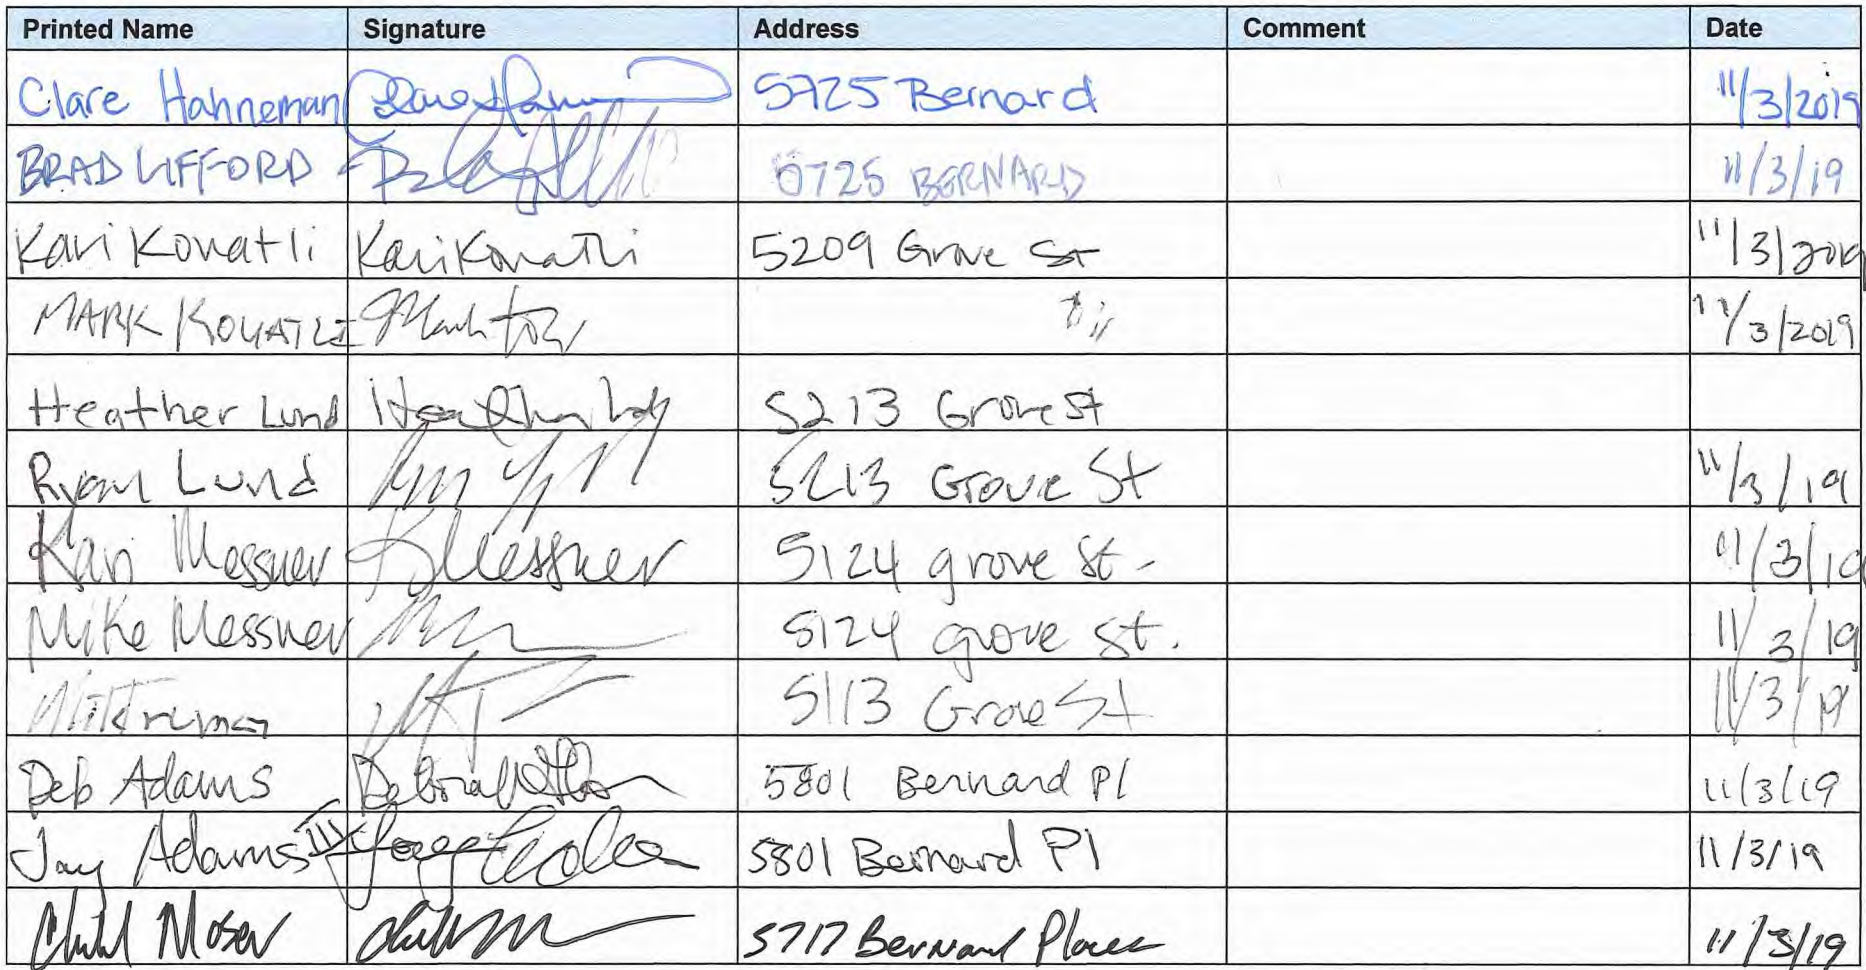 Printed Name Signature Address Comment Date
Clare Hahneman 5725 Bernard 11/3/2019
BRAD LIFFORD 5725 BERNARD 11/3/19
Kari Kovatli Kari Kovatli 5209 Grove St 11/3/2019
MARK KOVATLI " 11/3/2019
Heather Lund Heather 5213 Grove St
Ryan Lund 5213 Grove St 11/3/19
Kari Messner K Messner 5124 grove st. 11/3/19
Mike Messner 5124 grove st. 11/3/19
5113 Grove St 11/3/19
Deb Adams Deborah 5801 Bernard Pl 11/3/19
Jay Adams III 5801 Bernard Pl 11/3/19
Moser 5717 Bernard Place 11/3/19